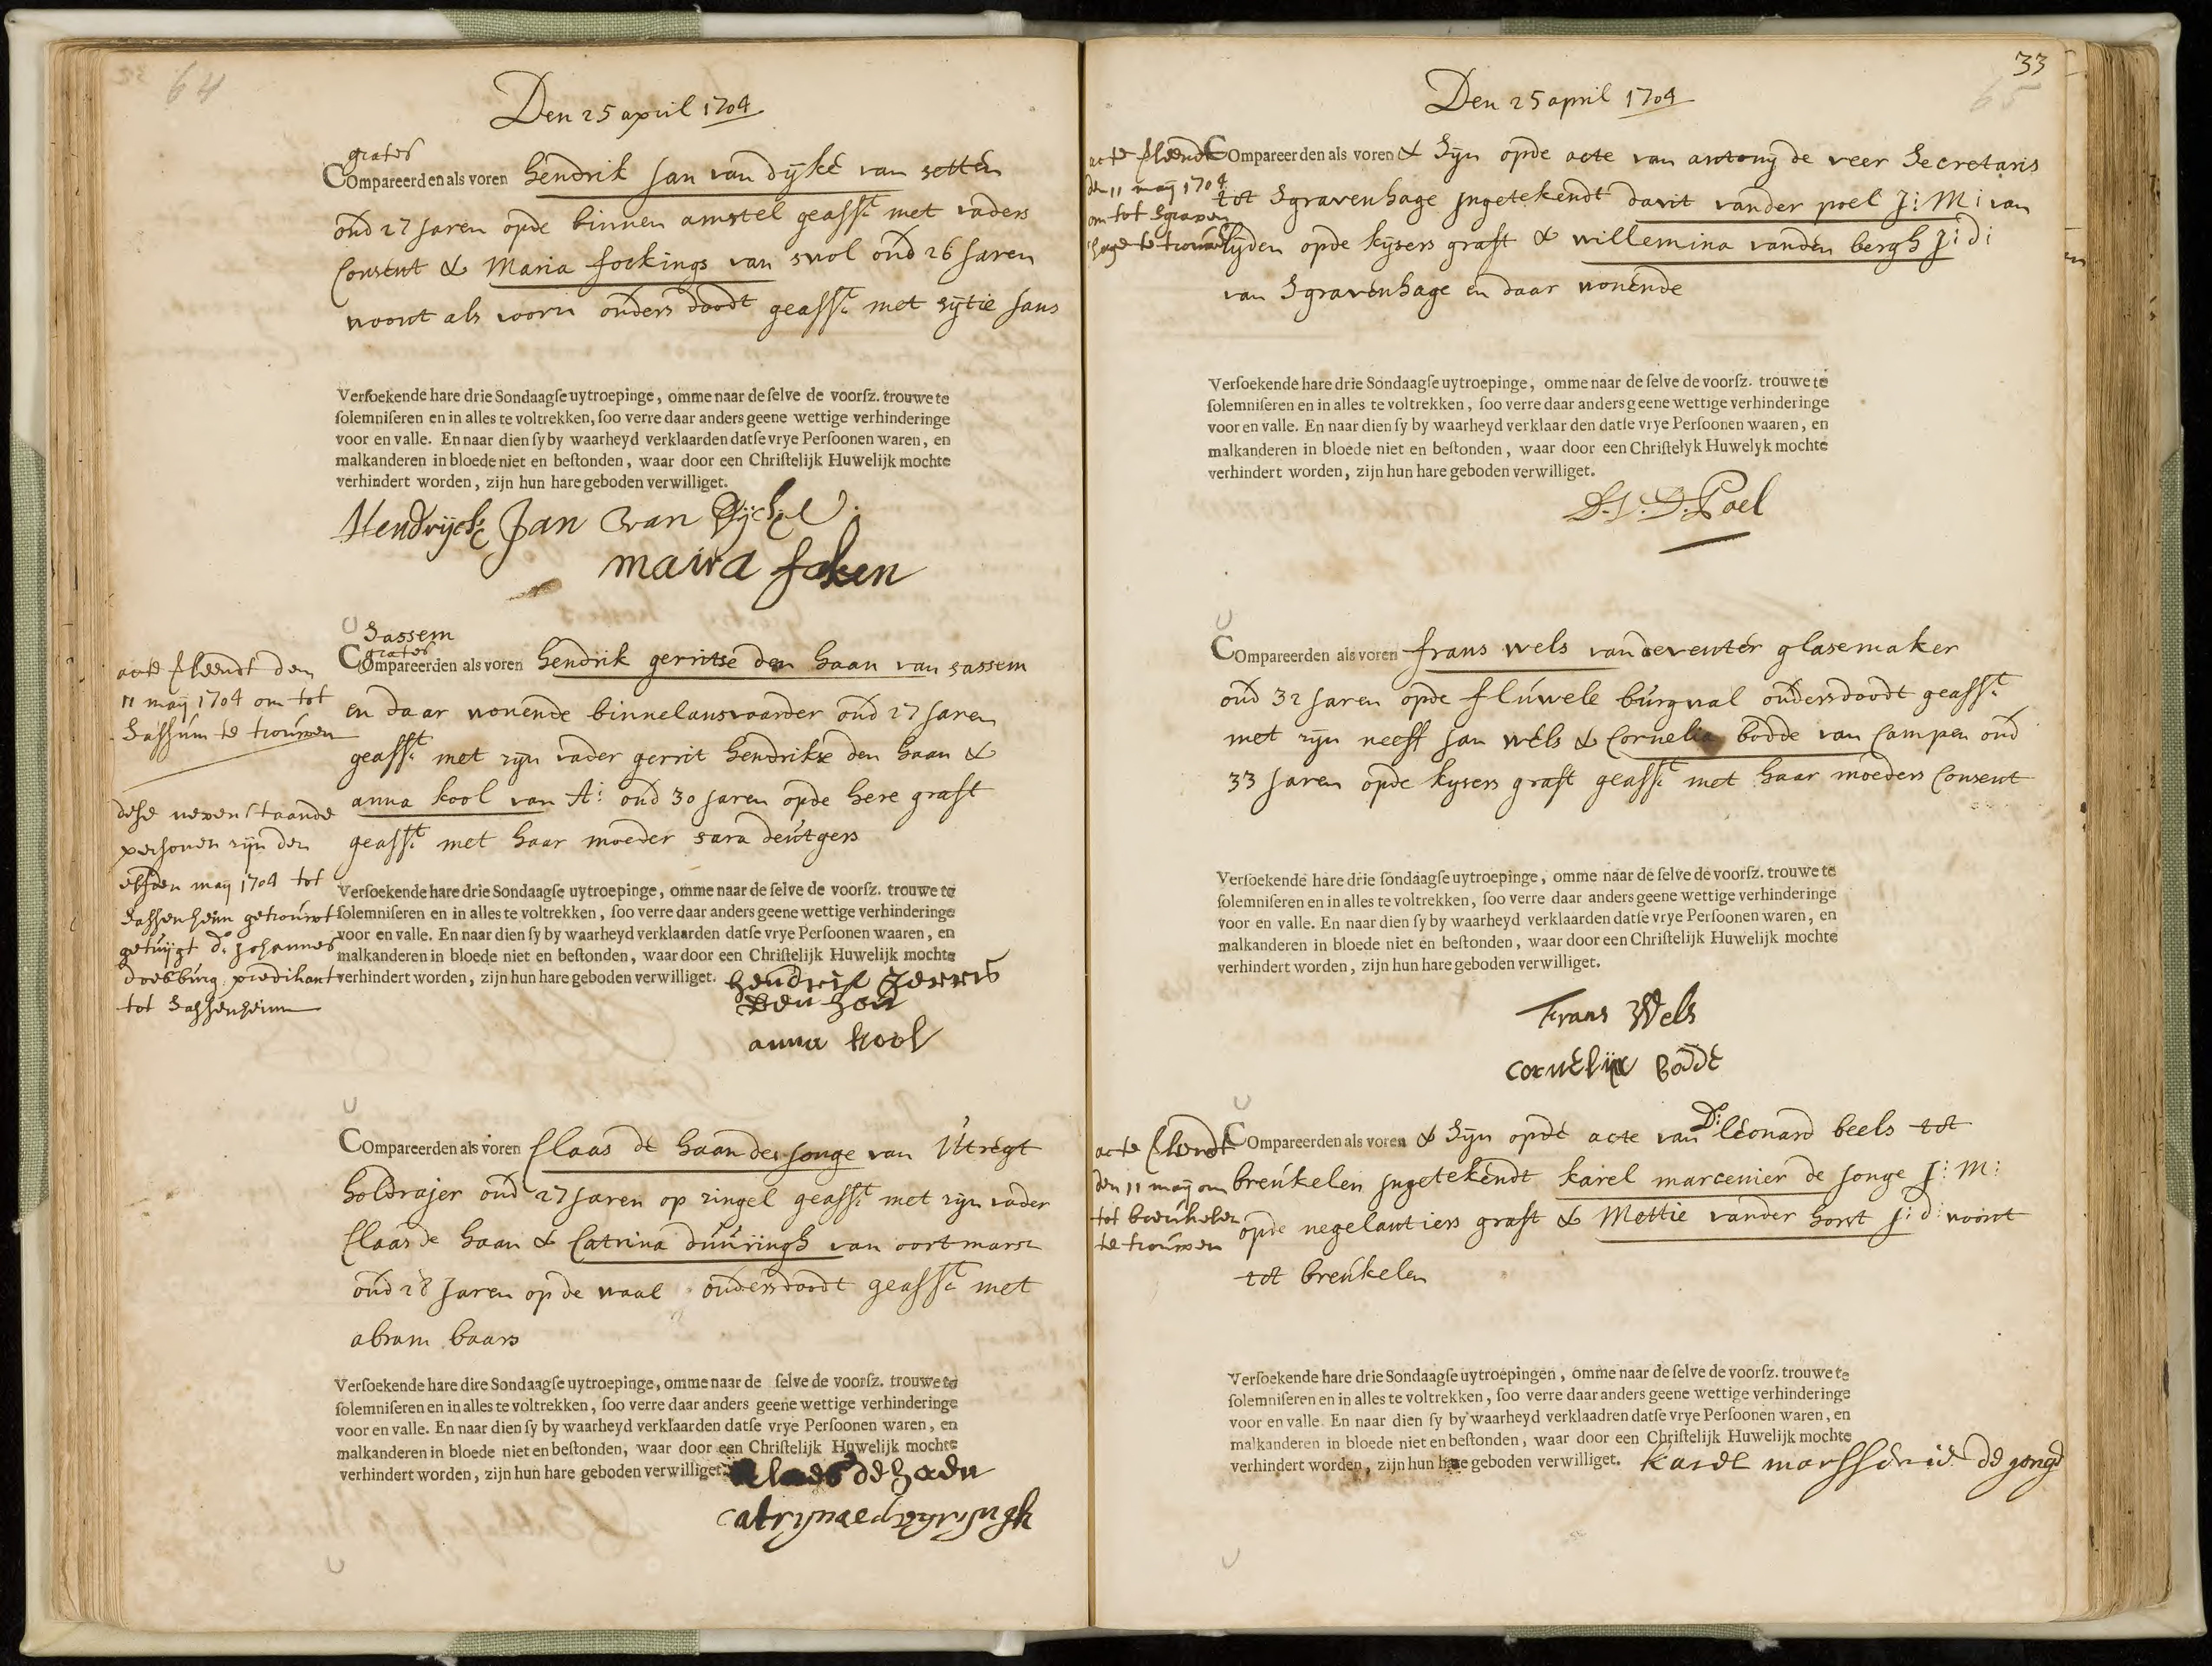 64
Den 25 april 1704
gratis
Compareerden als voren hendrik jan van dijke van setten
oud 27 jaren opde binnen amstel geasst. met vaders
Consent & Maria fockings van swol oud 26 jaren
woont als voorn ouders doodt geasst. met sijtie jans
Versoekende hare drie Sondaagse uytroepinge, omme naar de selve de voorsz. trouwe te
solemniseren en in alles te voltrekken, soo verre daar anders geene wettige verhinderinge
voor en valle. En naar dien sy by waarheyd verklaarden datse vrye Persoonen waren, en
malkanderen in bloede niet en bestonden, waar door een Christelijk Huwelijk mochte
verhindert worden, zijn hun hare geboden verwilliget.
Hendrijck Jan Van Dijcke
maira foken
acte verleendt den
11 maij 1704 om tot
Sassum te trouwen
dese nevenstaande
persoonen zijn den
elfden maij 1704 tot
Sassenheim getrouwt
getuijgt ds. Johannes
doesburg predikant
tot Sassenheim
Sassem
gratis
Compareerden als voren hendrik gerritse den haan van sassem
en daar wonende binnelansvaarder oud 27 jaren
geasst. met zijn vader gerrit hendrikse den haan &
anna kool van A: oud 30 jaren opde here graft
geasst. met haar moeder sara deutgers
Versoekende hare drie Sondaagse uytroepinge, omme naar de selve de voorsz. trouwe te
solemniseren en in alles te voltrekken, soo verre daar anders geene wettige verhinderinge
voor en valle. En naar dien sy by waarheyd verklaarden datse vrye Persoonen waaren, en
malkanderen in bloede niet en bestonden, waar door een Christelijk Huwelijk mochte
verhindert worden, zijn hun hare geboden verwilliget.
hendrik Gerris
den han
anna kool
Compareerden als voren Claas de haan de jonge van Utregt
holdrajer oud 27 jaren op zingel geasst. met zijn vader
Claas de haan & Catrina duuringh van oortmars
oud 28 jaren op de waal ouders doodt geasst. met
abram baars
Versoekende hare dire Sondaagse uytroepinge, omme naar de selve de voorsz. trouwe te
solemniseren en in alles te voltrekken, soo verre daar anders geene wettige verhinderinge
voor en valle. En naar dien sy by waarheyd verklaarden datse vrye Persoonen waren, en
malkanderen in bloede niet en bestonden, waar door een Christelijk Huwelijk mochte
verhindert worden, zijn hun hare geboden verwilliget.
klaes de haen
catrynae duyringh
33
65
Den 25 april 1704
acte verleendt
den 11 maij 1704
om tot Sgraven
hage te trouwen
Compareerden als voren & Sijn opde acte van antony de veer Secretaris
tot Sgravenhage jngetekendt davit vander poel J: M: van
lijden opde kijsers graft & willemina vanden bergh J: d:
van Sgravenhage en daar wonende
Versoekende hare drie Sondaagse uytroepinge, omme naar de selve de voorsz. trouwe te
solemniseren en in alles te voltrekken, soo verre daar anders geene wettige verhinderinge
voor en valle. En naar dien sy by waarheyd verklaar den datse vrye Persoonen waaren, en
malkanderen in bloede niet en bestonden, waar door een Christelyk Huwelyk mochte
verhindert worden, zijn hun hare geboden verwilliget.
D. V. D. Poel
Compareerden als voren frans wels van deventer glasemaker
oud 32 jaren opde fluwele burgwal ouders doodt geasst.
met zijn neeff jan wels & Cornelia bodde van Campen oud
33 jaren opde kysers graft geasst. met haar moeders Consent
Versoekende hare drie sondaagse uytroepinge, omme naar de selve de voorsz. trouwe te
solemniseren en in alles te voltrekken, soo verre daar anders geene wettige verhinderinge
voor en valle. En naar dien sy by waarheyd verklaarden datse vrye Persoonen waren, en
malkanderen in bloede niet en bestonden, waar door een Christelijk Huwelijk mochte
verhindert worden, zijn hun hare geboden verwilliget.
Frans Wels
cornelija bodde
acte verleendt
den 11 maij om
tot breukelen
te trouwen
Compareerden als voren & Sijn opde acte van Ds: leonard beels tot
breukelen jngetekendt karel marcenier de jonge J: M:
opde negelantiers graft & Mettie vander horst j: d: woont
tot breukelen
Versoekende hare drie Sondaagse uytroepingen, omme naar de selve de voorsz. trouwe te
solemniseren en in alles te voltrekken, soo verre daar anders geene wettige verhinderinge
voor en valle. En naar dien sy by waarheyd verklaadren datse vrye Persoonen waren, en
malkanderen in bloede niet en bestonden, waar door een Christelijk Huwelijk mochte
verhindert worden, zijn hun hare geboden verwilliget.
karel marssenie de jonge